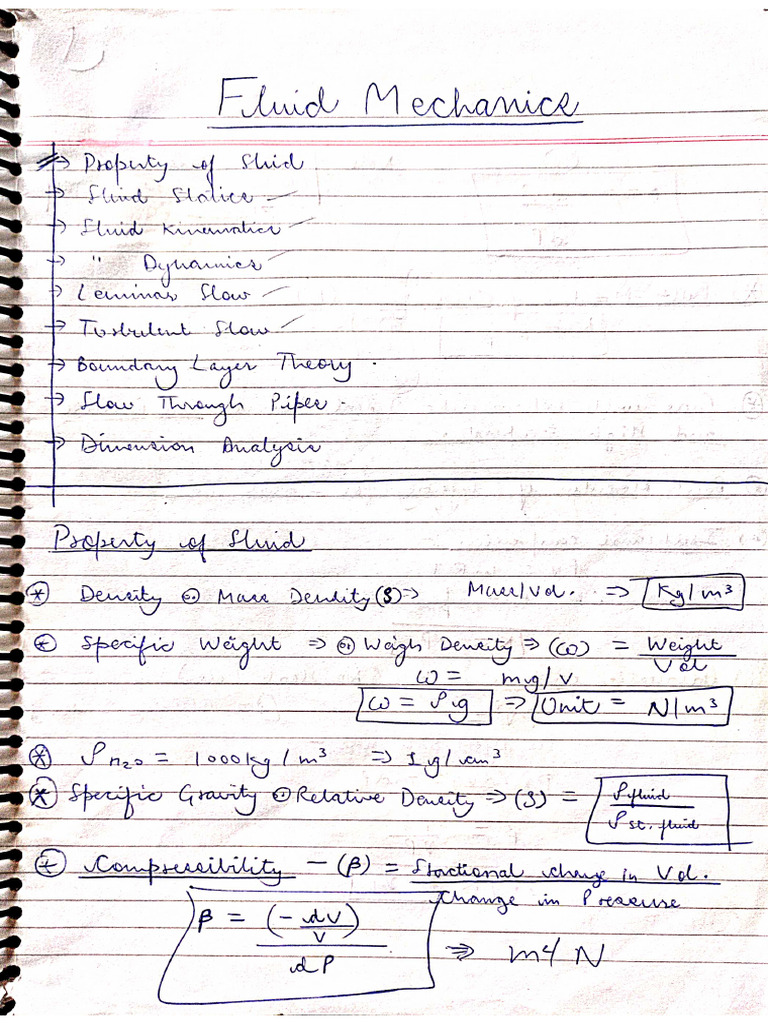 Fluid Mechanics
→ Property of fluid
→ Fluid Statics
→ Fluid Kinematics
→ " Dynamics
→ Leminar flow
→ Turbulent flow
→ Boundary Layer Theory.
→ Flow Through Pipes.
→ Dimension Analysis
Property of fluid
* Density or Mass Density (S) ⇒ Mass/Vol. ⇒ Kg/m³
* Specific Weight ⇒ or Weigh Density ⇒ (ω) = Weight / Vol
ω = mg/v
ω = ρg ⇒ Unit = N/m³
* ρH₂O = 1000kg/m³ ⇒ 1g/cm³
* Specific Gravity or Relative Density ⇒ (S) = ρfluid / ρst. fluid
* Compressibility - (β) = fractional change in Vol. / Change in Pressure
β = (-dV/V) / dP ⇒ m²/N